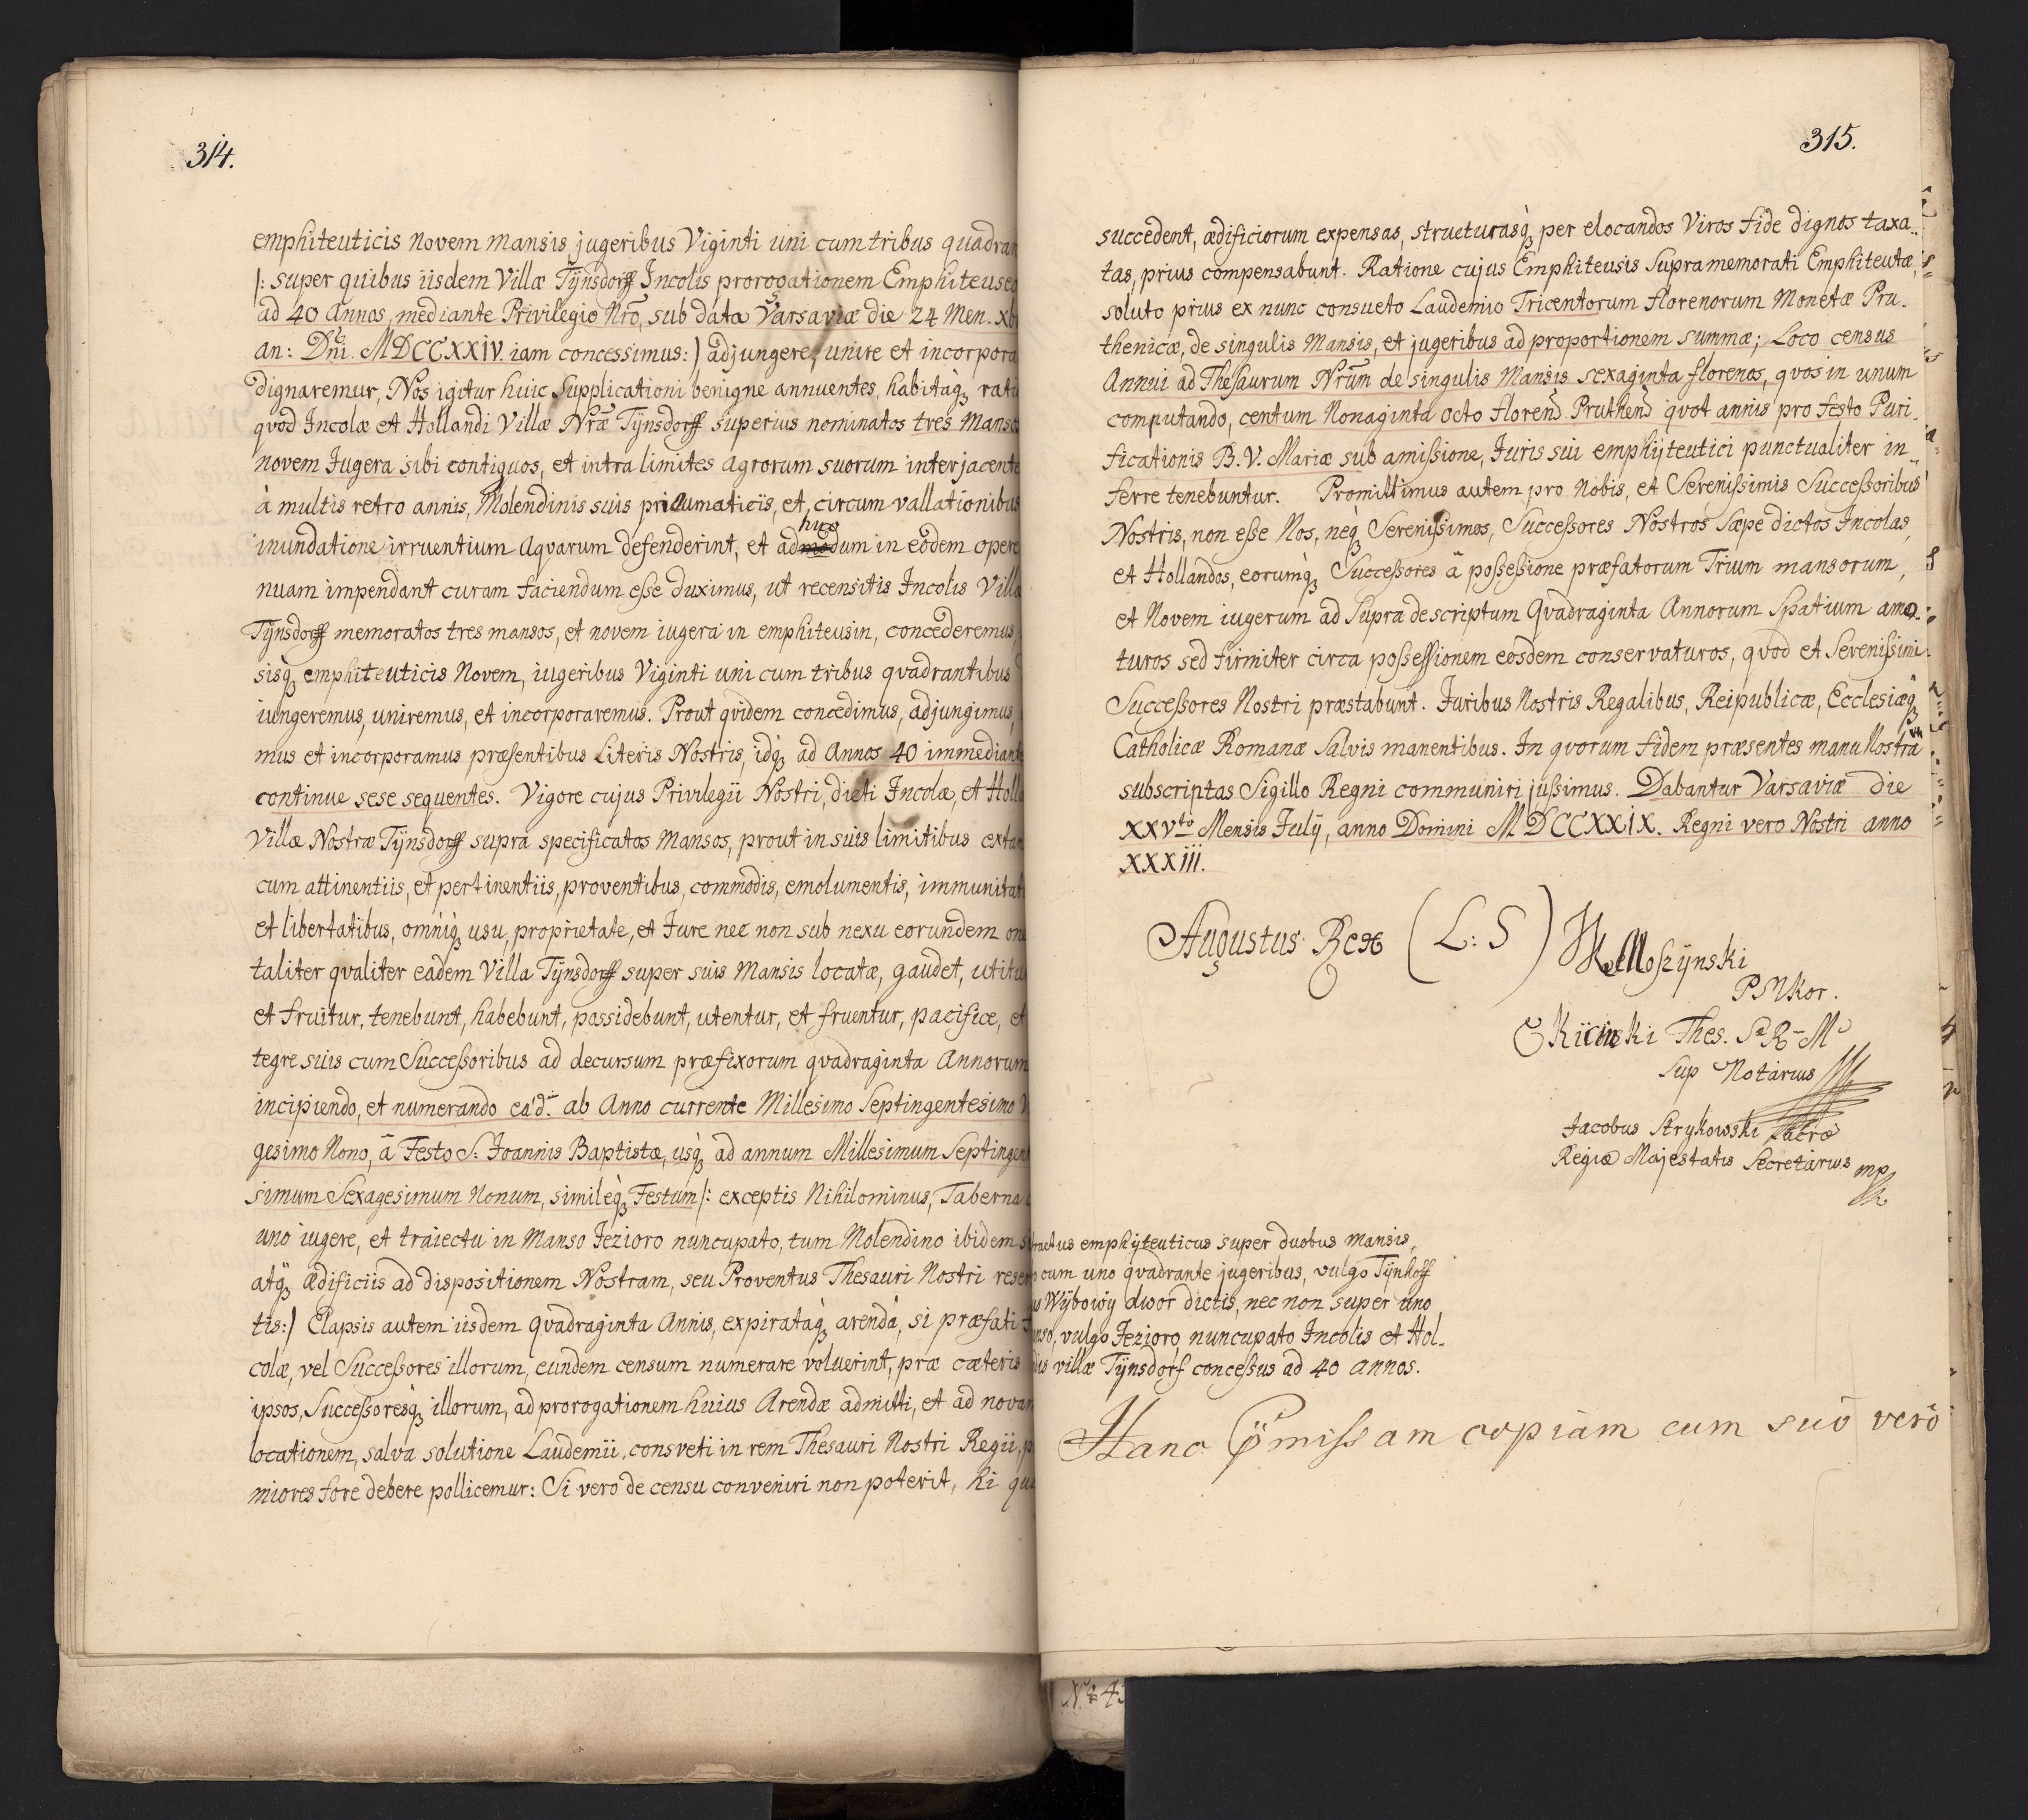 314.
emphiteuticis novem mansis jugeribus Viginti uni cum tribus quadran
/: super quibus iisdem Villæ Tÿnsdorff Incolis prorogationem Emphiteuseo
ad 40 Annos, mediante Privilegio Nr̃o, sub data Varsaviæ die 24 Men. xb
an: Dn̄i. MDCCXXIV. iam concessimus:) adjungere, unire et incorpora
dignaremur, Nos igitur huic Supplicationi benigne annuentes, habitaq; rati
qvod Incolæ et Hollandi Villæ Nr̃æ Tÿnsdorff superius nominatos tres Manso
novem Jugera sibi contiguos, et intra limites agrorum suorum interjacente
à multis retro annis, Molendinis suis pnaumaticis, et, circum vallationibus
inundatione irruentium Aqvarum defenderint, et adhucdum in eodem opere
nuam impendant curam faciendum eße duximus, ut recensitis Incolis Villæ
Tÿnsdorff memoratos tres mansos, et novem iugera in emphiteusin, concederemus
sisq; emphiteuticis Novem, iugeribus Viginti uni cum tribus qvadrantibus
iungeremus, uniremus, et incorporaremus. Prout qvidem concedimus, adjungimus,
mus et incorporamus præsentibus Literis Nostris, idq; ad Annos 40 immediante
continue sese sequentes. Vigore cujus Privilegii Nostri, dicti Incolæ, et Holla
Villæ Nostræ Tÿnsdorff supra specificatos Mansos, prout in suis limitibus extan
cum attinentiis, et pertinentiis, proventibus, commodis, emolumentis, immunitat
et libertatibus, omniq; usu, proprietate, et Jure nec non sub nexu eorundem one
taliter qvaliter eadem Villa Tÿnsdorff super suis Mansis locata, gaudet, utitu
et fruitur, tenebunt, habebunt, possidebunt, utentur, et fruentur, pacifice, et
tegre suis cum Succeßoribus ad decursum præfixorum qvadraginta Annorum
incipiendo, et numerando ea'd. ab Anno currente Millesimo Septingentesimo V
gesimo Nono, ā Festo S. Joannis Baptistæ, usq; ad annum Millesimum Septingent
simum Sexagesimum Nonum, simileq; Festum /: exceptis Nihilominus, Taberna
uno iugere, et traiectu in Manso Jezioro nuncupato, tum Molendino ibidem s
atq; ædificiis ad dispositionem Nostram, seu Proventus Thesauri Nostri reser
tis:) Elapsis autem iisdem qvadraginta Annis, expirataq; arenda, si præfati
colæ, vel Succeßores illorum, eundem censum numerare voluerint, præ cæteris
ipsos, Succeßoresq; illorum, ad prorogationem huius Arendæ admitti, et ad novam
locationem, salva solutione Laudemii, consveti in rem Thesauri Nostri Regii, p
miores fore debere pollicemur: Si vero de censu conveniri non poterit, hi qu
315.
succedent, ædificiorum expensas, structurasq; per elocandos Viros fide dignos taxa-
tas, prius compensabunt. Ratione cujus Emphiteusis Supramemorati Emphiteutæ,
soluto prius ex nunc consueto Laudemio Tricentorum florenorum Monetæ Pru-
thenicæ, de singulis Mansis, et jugeribus ad proportionem summæ; Loco census
Annui ad Thesaurum Nr̃um de singulis Mansis sexaginta florenos, qvos in unum
computando, centum Nonaginta octo floren Pruthen qvot annis pro festo Puri-
ficationis B. V. Mariæ sub amißione, Juris sui emphÿteutici punctualiter in-
ferre tenebuntur. Promittimus autem pro Nobis, et Serenißimis Succeßoribus
Nostris, non eße Nos, neq; Serenißimos, Succeßores Nostros Sæpe dictos Incolas,
et Hollandos, eorumq; Succeßores ā poßeßione præfatorum Trium mansorum,
et Novem iugerum ad Supra descriptum Qvadraginta Annorum Spatium amo-
turos sed firmiter circa poßeßionem eosdem conservaturos, qvod et Serenißimi
Succeßores Nostri præstabunt. Juribus Nostris Regalibus, Reipublicæ, Ecclesiæq;
Catholicæ Romanæ Salvis manentibus. In qvorum fidem præsentes manu Nostra
subscriptas Sigillo Regni communiri jußimus. Dabantur Varsaviæ die
XXVto Mensis Julÿ, anno Domini MDCCXXIX. Regni vero Nostri anno
XXXIII.
Augustus Rex (L: S)
Moszÿnski
PNKor.
Kicinski Thes. S R M
Sup Notarius
Jacobus Strykowski Sacræ
Regiæ Majestatis Secretarius mp
ractus emphÿteuticus super duobus mansis,
cum uno qvadrante jugeribus, vulgo Tÿnhoff
us Wÿbowÿ dwor dictis, nec non super uno
nso, vulgo Jezioro nuncupato Incolis et Hol-
dis villæ Tÿnsdorf conceßus ad 40 annos.
Hanc p̈mißam copiam cum suo vero
No 4